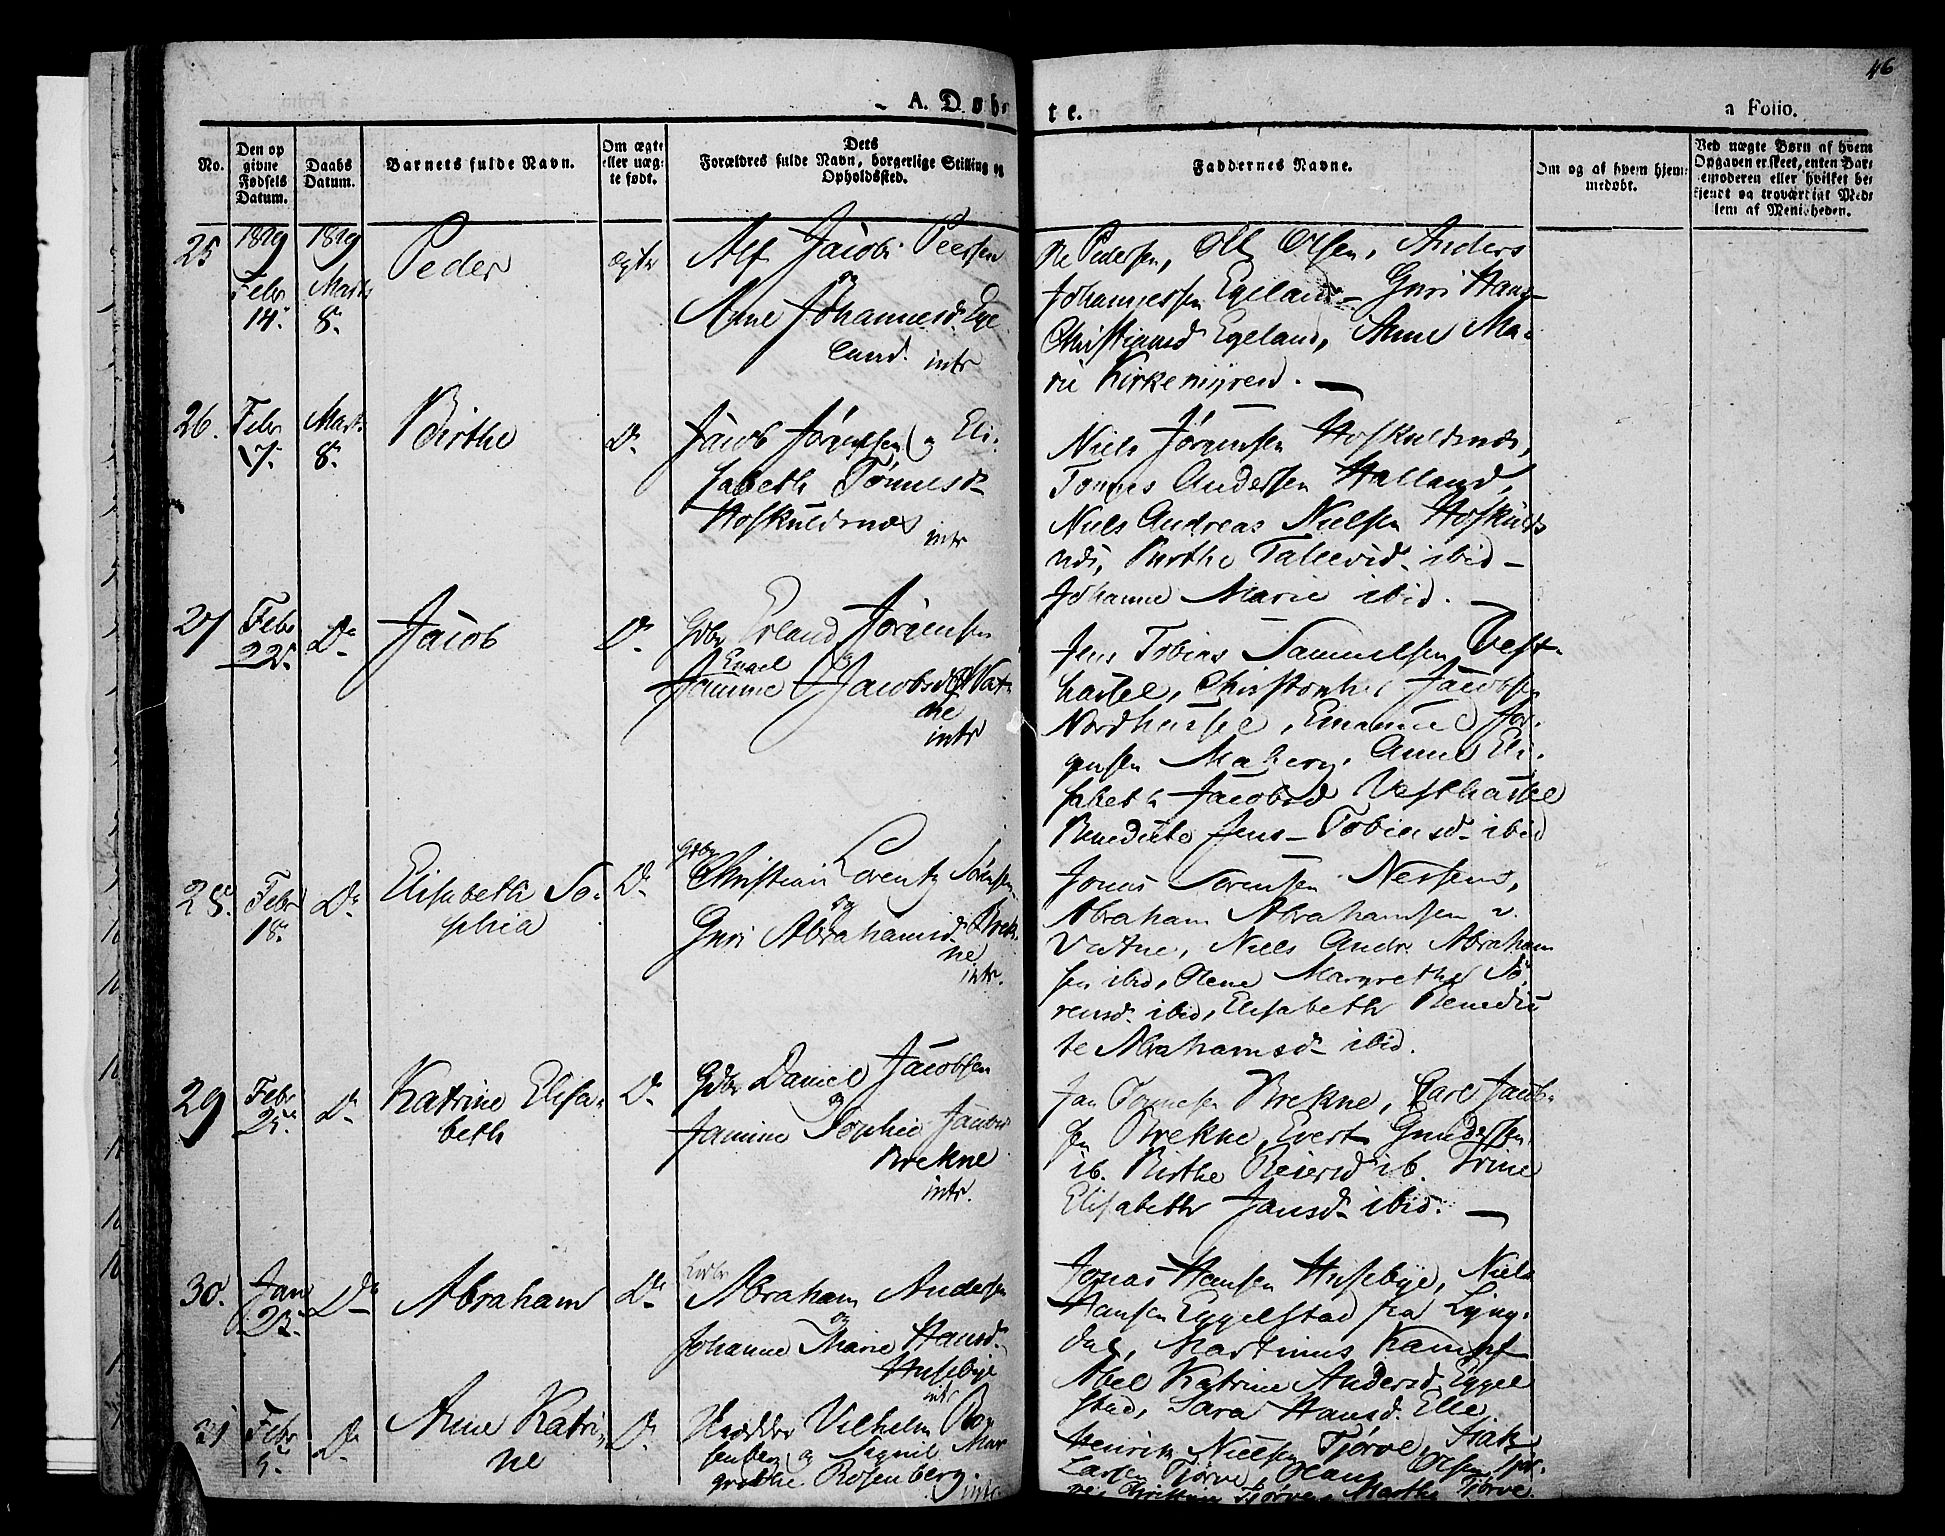 46
A. Døbte.
a Folio.
No.
Den op
givne
Fødsels
Datum.
Daabs
Datum.
Barnets fulde Navn.
Om ægte
eller uæg-
te født.
Dets
Forældres fulde Navn, borgerlige Stilling og
Opholdssted.
Faddernes Navne.
Om og af hvem hjem-
medøbt.
Ved uægte Børn af hvem
Opgaven er skeet, enten Bar-
nemoderen eller hvilket be-
kjendt og troværdigt Med-
lem af Menigheden.
25
1829
Febr
14.
1829
Marts
8.
Peder
ægte
Alf Jacob Peersen
og
Anne Johannesd. Ege
land.
intr
Ole Pedersen, Ole Olsen, Anders
Johannessen Egeland - Guri Hans-
Christiansd Egeland, Anne Ma-
rie Kirkemyren.
26.
Febr
7.
Mart.
8.
Birthe
Do
Jacob Jørgensen og Eli-
sabeth Tønnesd
Hoskuldsnes
intr
Niels Jørgensen Hoskuldsnes,
Tønnes Andersen Halland,
Niels Andreas Nielsen Hoskulds
nes, Birthe Tallevsd. ibid -
Johanne Marie ibid.
27
Febr
22.
Do
Jacob
Do
Gdbr Erland Jørgensen
Engel og
Janne Jacobsd. Vat-
ne
intr
Jens Tobias Samuelsen Vest-
hassel, Christopher Jacobsen
Nordhassel, Emanuel Jør-
gensen Maberg, Anne Eli-
sabeth Jacobsd Vesthassel
Benedicte Jens-Tobiasd. ibid
28.
Febr
18.
Do
Elisabeth So-
phia
Do
Gdbr
Christian Lorentz Sørensen
og
Guri Abrahamsd. Brek-
ne
intr.
Jonas Sørensen Nessem,
Abraham Abrahamsen
Vatne, Niels Andr. Abraham
sen ibid, Olene Margrethe Sø-
rensd. ibid, Elisabeth Benedic
te Abrahamsd. ibid.
29
Febr
25.
Do
Katrine Elisa-
beth
Do
Gdbr Daniel Jacobsen
og
Janine Sophie Jacobsd
Brekne
intr.
Jan Tønnesen Brekne, Carl Jacob-
sen Brekne, Evert Gundersen
ib. Birthe Reiersd ib. Trine
Elisabeth Jansd. ibid.
30.
Jan
23.
Do
Abraham
Do
Abraham Andersen
og
Johanne Marie Hansd.
Husebye
intr
Jonas Hansen Husebye, Niels
Hansen Eggelstad fra Lyng-
dal, Martinus Kampf
Abel Katrine Andersd. Eggel
stad, Sara Hansd. Elle.
31
Febr
9.
Do
Anne Katri-
ne
Do
Vilhelm Ro
senberg og Signil Mar
grethe Rosenberg.
intr
Henrik Nielsen Tjørve, Isak
Larsen Tjørve, Olaus Olsen Tjør-
ve, Tjørve, Marthe Tjørve.